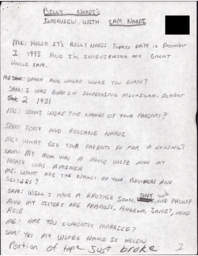 BILLY NARDI'S
INTERVIEW WITH SAM NARDI
ME: HELLO IT'S BILLY NARDI TODAYS DATE IS
1 1995 AND I'M INTERVIEWING MY GREAT
UNCLE SAM.
ME: SAM WHEN AND WHERE WERE YOU BORN?
SAM: I WAS BORN IN MICHIGAN, OCTOBER
2 1921
ME: WHAT WERE THE NAMES OF YOUR PARENTS?
SAM: TONY AND NARDI
ME: WHAT DID YOUR PARENTS DO FOR A LIVING?
SAM: MY MOM WAS A HOUSE WIFE AND MY
FATHER WAS A
ME: WHAT ARE THE NAMES OF YOUR BROTHERS AND
SISTERS?
SAM: WELL I HAVE A BROTHER AND PHILLIP
AND MY SISTERS ARE FRANCES, ANGELA, AND
ROSE
ME: ARE YOU CURRENTLY MARRIED?
SAM: YES MY WIFES NAME IS HELEN
Portion of tape just broke